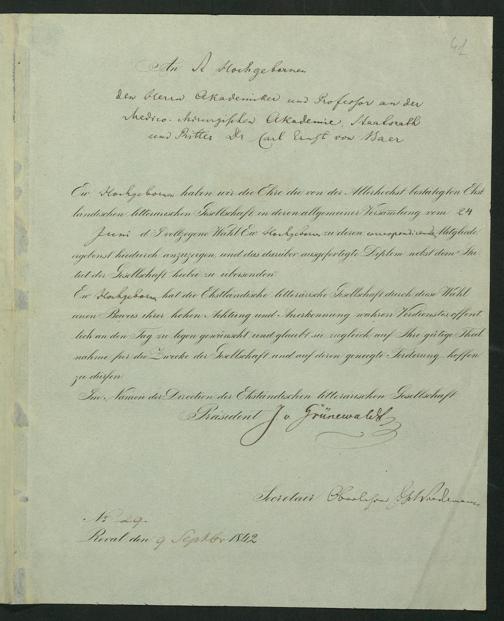 41
An S Hochgeboren
den Herrn Akademiker und Professor an der
Medico-chirurgischen Akademie, Staatsrath
und Ritter Dr Carl Ernst von Baer
Ew Hochgeboren haben wir die Ehre die von der Allerhöchst bestätigten Ehst
ländischen litterärischen Gesellschaft in deren allgemeiner Versammlung vom 24
Juni d J vollzogene Wahl Ew Hochgeboren zu deren correspondirenden Mitgliede
ergebenst hiedurch anzuzeigen und das darüber ausgefertigte Diplom nebst dem Sta
tut der Gesellschaft hiebei zu übersenden
Ew Hochgeboren hat die Ehstländische litterärische Gesellschaft durch diese Wahl
einen Beweis ihrer hohen Achtung und Anerkennung wahren Verdienstes öffent
lich an den Tag zu legen gewünscht und glaubt sie zugleich auf Ihre gütige Theil
nahme für die Zwecke der Gesellschaft und auf deren geneigte Förderung hoffen
zu dürfen
Im Namen der Direction der Ehstländischen litterärischen Gesellschaft
Präsident J v Grünewaldt
Secretair Oberlehrer Wiedemann
No 29.
Reval den 9 Septbr 1842